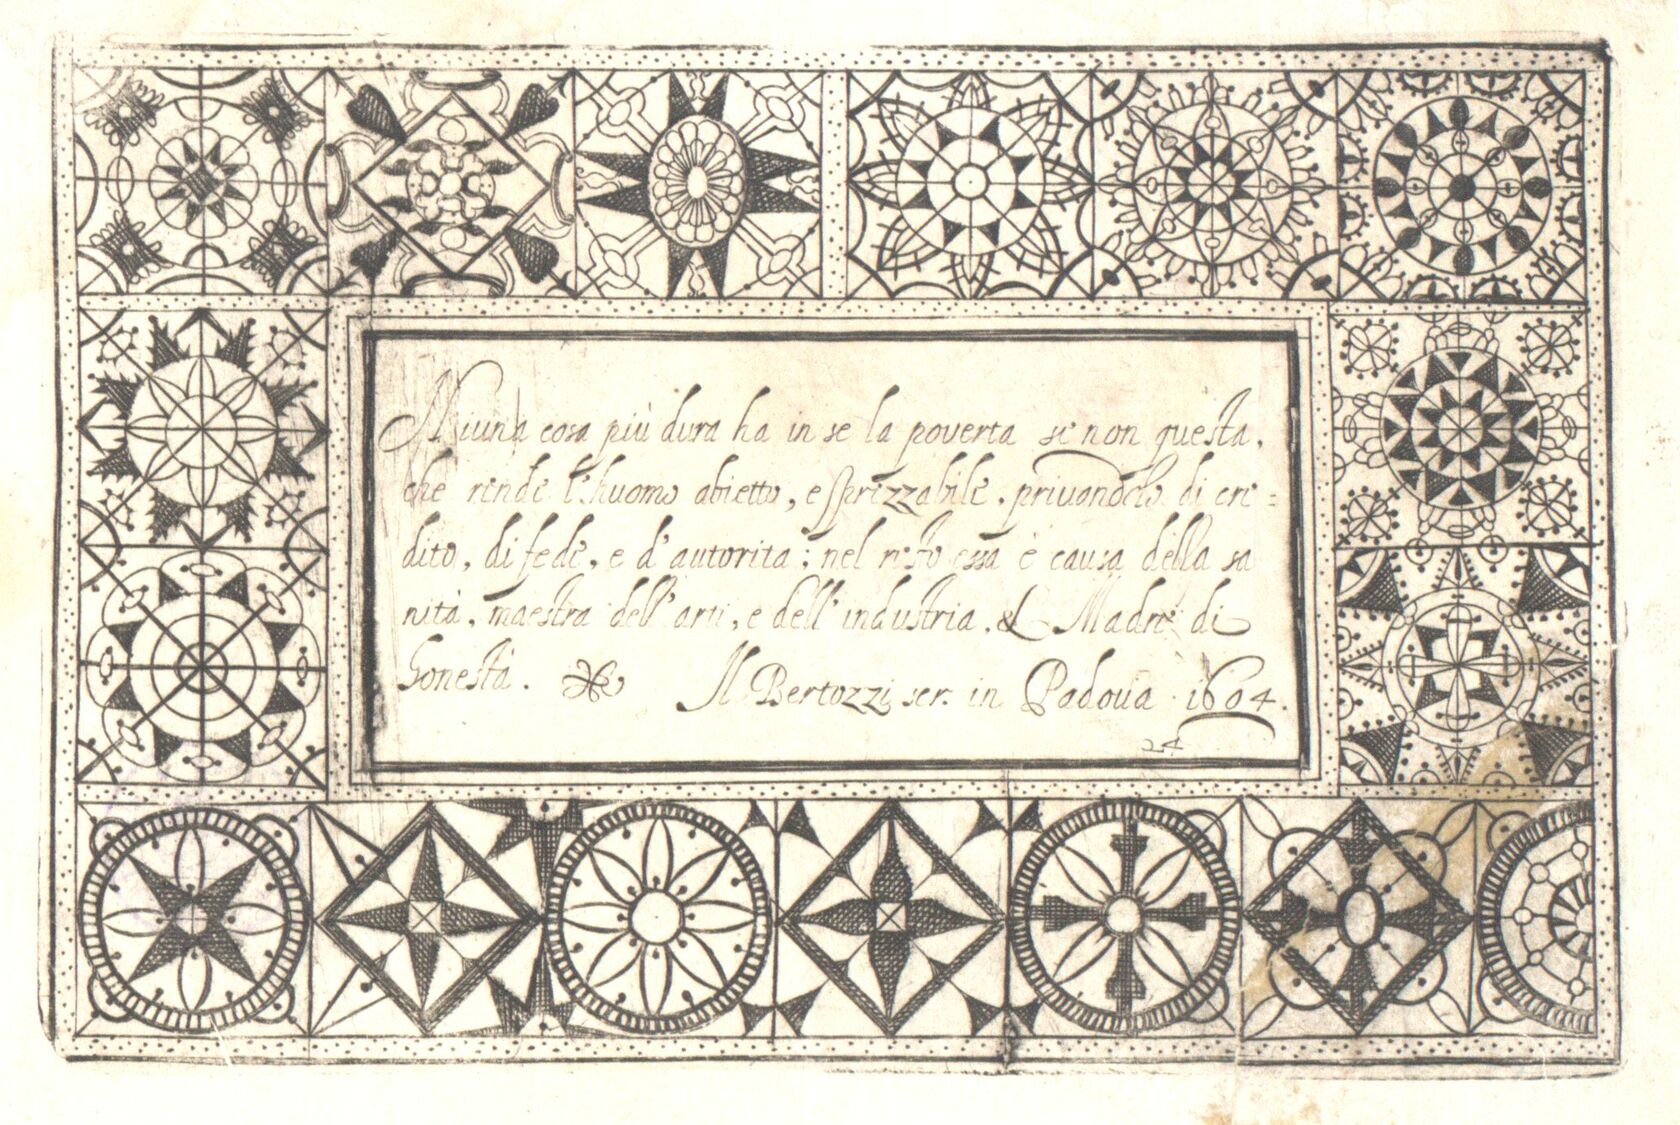 Niuna cosa più dura ha in se la poverta se non questa,
che rende l'huomo abietto, e sprezzabile, privandolo di cre=
dito, di fede, e d'autorita; nel resto essa è causa della sa
nità, maestra dell'arti, e dell'industria, & Madre di
honestà. Il Bertozzi scr. in Padoua 1604.
24